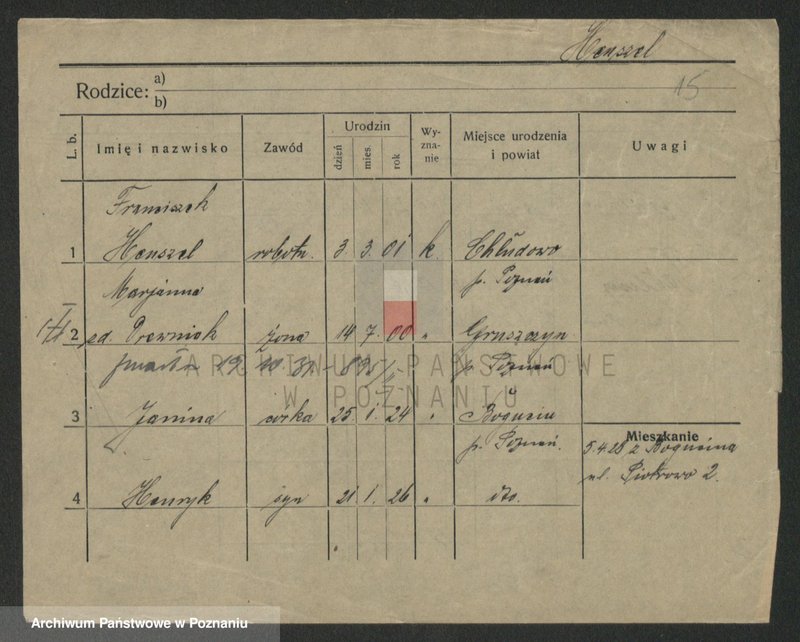 Henszel
15
Rodzice: a)
b)
L. b. Imię i nazwisko Zawód Urodzin dzień mies. rok Wy-zna-nie Miejsce urodzenia i powiat Uwagi
Franciszek
1 Henszel robotn. 3. 3. 01 k. Chłudowo
p. Poznań
Marjanna
2 żona 14 7. 00 " Gruszczyn
p. Poznań
3 Janina córka 25. 1. 24 " Bogucin
p. Poznań.
4 Henryk syn 21 1. 26 " dto.
Mieszkanie
5.4.28 z Bogucina
ul. Piotrowo 2.
ARCHIWUM PAŃSTWOWE
W POZNANIU
Archiwum Państwowe w Poznaniu